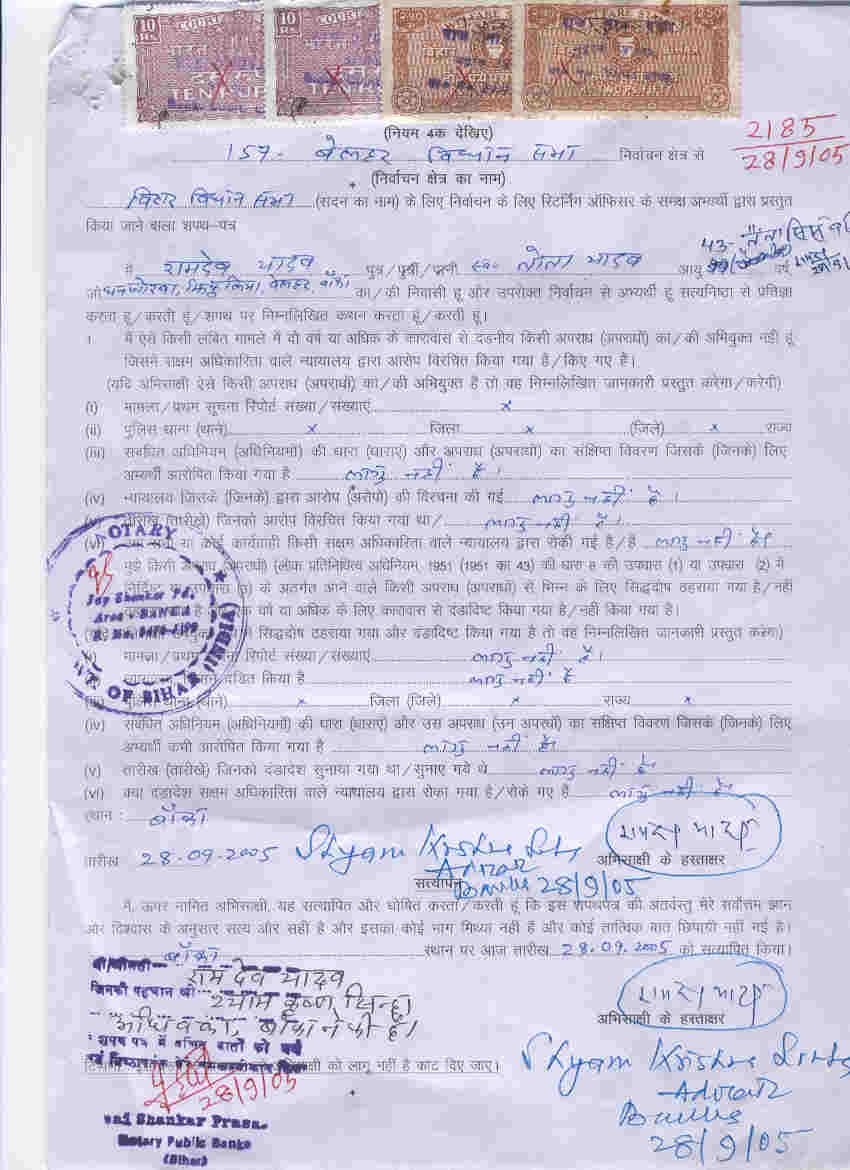 10 Rs. COURT
10 Rs. COURT
भारत
भारत
बिहार
BIHAR
(नियम 4क देखिए)
2185
28/9/05
157- बेलहर विधान सभा निर्वाचन क्षेत्र से
(निर्वाचन क्षेत्र का नाम)
बिहार विधान सभा (सदन का नाम) के लिए निर्वाचन के लिए रिटर्निंग ऑफिसर के समक्ष अभ्यर्थी द्वारा प्रस्तुत
किया जाने वाला शपथ–पत्र
43-
मैं रामदेव यादव पुत्र/पुत्री/पत्नी स्व० यादव आयु वर्ष
जो बेलहर, बाँका का/की निवासी हूं और उपरोक्त निर्वाचन से अभ्यर्थी हूं सत्यनिष्ठा से प्रतिज्ञा
करता हूं/करती हूं/शपथ पर निम्नलिखित कथन करता हूं/करती हूं।
1 मैं ऐसे किसी लंबित मामले में दो वर्ष या अधिक के कारावास से दंडनीय किसी अपराध (अपराधों) का/की अभियुक्त नहीं हूं
जिसमें सक्षम अधिकारिता वाले न्यायालय द्वारा आरोप विरचित किया गया है/किए गए हैं।
(यदि अभिसाक्षी ऐसे किसी अपराध (अपराधों) का/की अभियुक्त है तो वह निम्नलिखित जानकारी प्रस्तुत करेगा/करेगी)
(i) मामला/प्रथम सूचना रिपोर्ट संख्या/संख्याएं x
(ii) पुलिस थाना (थाने) x जिला x (जिले) x राज्य
(iii) संबंधित अधिनियम (अधिनियमों) की धारा (धाराएं) और अपराध (अपराधों) का संक्षिप्त विवरण जिसके (जिनके) लिए
अभ्यर्थी आरोपित किया गया है लागु नहीं है।
(iv) न्यायालय जिसके (जिनके) द्वारा आरोप (आरोपों) की विरचना की गई लागु नहीं है।
तारीख (तारीखें) जिनको आरोप विरचित किया गया था/ लागु नहीं है।
(vi) या कोई कार्यवाही किसी सक्षम अधिकारिता वाले न्यायालय द्वारा रोकी गई है/हैं लागु नहीं है।
मुझे किसी अपराध (अपराधों) (लोक प्रतिनिधित्व अधिनियम, 1951 (1951 का 43) की धारा 8 की उपधारा (1) या उपधारा (2) में
के अंतर्गत आने वाले किसी अपराध (अपराधों) से भिन्न के लिए सिद्धदोष ठहराया गया है/नहीं
एक वर्ष या अधिक के लिए कारावास से दंडादिष्ट किया गया है/नहीं किया गया है।
सिद्धदोष ठहराया गया और दंडादिष्ट किया गया है तो वह निम्नलिखित जानकारी प्रस्तुत करेगा)
मामला/प्रथम रिपोर्ट संख्या/संख्याएं लागु नहीं है।
दंडित किया है लागु नहीं है
(थाने) x जिला (जिले) x राज्य x
(iv) संबंधित अधिनियम (अधिनियमों) की धारा (धाराएं) और उस अपराध (उन अपराधों) का संक्षिप्त विवरण जिसके (जिनके) लिए
अभ्यर्थी कभी आरोपित किया गया है लागु नहीं है।
(v) तारीख (तारीखें) जिनको दंडादेश सुनाया गया था/सुनाए गये थे लागु नहीं है
(vi) क्या दंडादेश सक्षम अधिकारिता वाले न्यायालय द्वारा रोका गया है/रोके गए हैं लागु नहीं है।
NOTARY
Jay Shankar Pd.
Area - BANKA
OF BIHAR (INDIA)
स्थान : बाँका
तारीख 28.09.2005
Shyam Krishna Sinha
Advocate
Banka 28/9/05
रामदेव यादव
अभिसाक्षी के हस्ताक्षर
सत्यापन
मैं, ऊपर नामित अभिसाक्षी, यह सत्यापित और घोषित करता/करती हूं कि इस शपथपत्र की अंतर्वस्तु मेरे सर्वोत्तम ज्ञान
और विश्वास के अनुसार सत्य और सही है और इसका कोई भाग मिथ्या नहीं है और कोई तात्विक बात छिपायी नहीं गई है।
बाँका स्थान पर आज तारीख 28.09.2005 को सत्यापित किया।
श्री/श्रीमती रामदेव यादव
जिनकी पहचान श्री श्याम कृष्ण सिन्हा
अधिवक्ता, बाँका ने की है।
रामदेव यादव
अभिसाक्षी के हस्ताक्षर
शपथ पत्र में वर्णित बातों को
को लागू नहीं है काट दिए जाए।
28/9/05
Jai Shankar Prasad
Notary Public Banka
(Bihar)
Shyam Krishna Sinha
Advocate
Banka
28/9/05